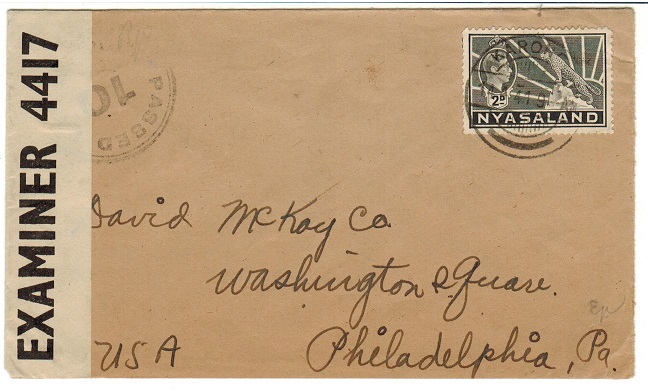 EXAMINER 4417
PASSED
2D
NYASALAND
David McKay Co.
Washington Square.
Philadelphia, Pa.
USA